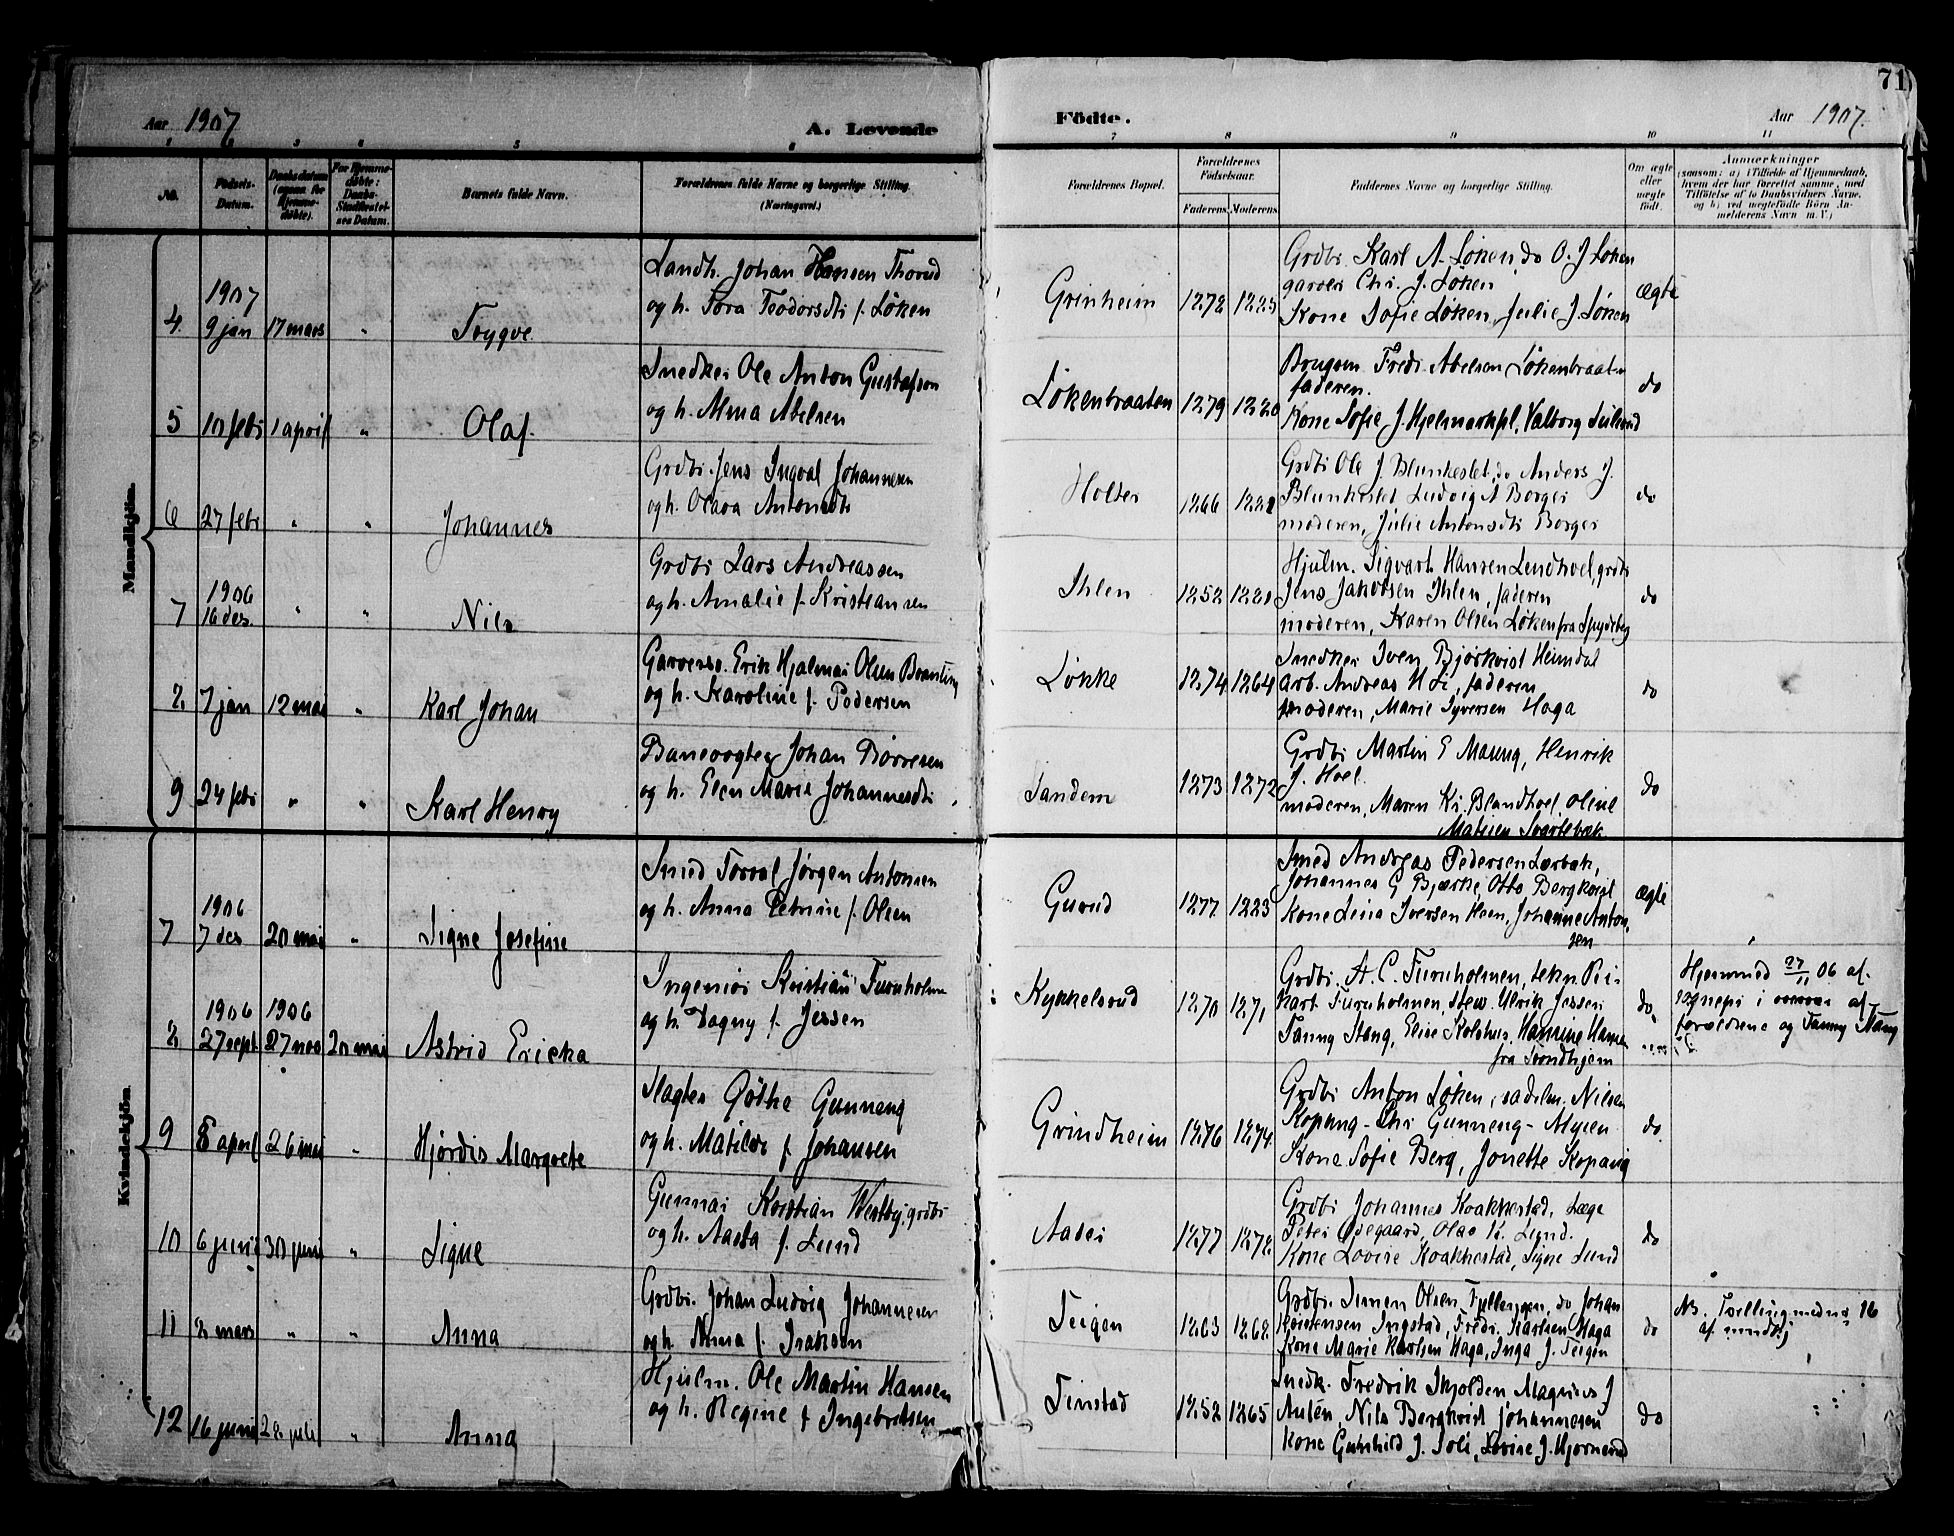 71
Aar 1907
A. Levende
Födte.
Aar 1907.
No.
Födsels-Datum.
Daabsdatum (ogsaa for Hjemmedöbte).
For Hjemmedöbte: Daabs-Stadfæstelses Datum.
Barnets fulde Navn.
Forældrenes fulde Navne og borgerlige Stilling. (Næringsvei.)
Forældrenes Bopæl.
Forældrenes Födselsaar.
Faderens. Moderens.
Faddernes Navne og borgerlige Stilling.
Om ægte eller uægte født.
Anmærkninger
(saasom: a) i Tilfælde af Hjemmedaab, hvem der har forrettet samme, med Tilföielse af to Daabsvidners Navne, og b) ved uægtefödte Börn Anmelderens Navn m. V.)
Mandkjön.
4 1907 9 jan 17 mars " Trygve
Landh. Johan Hansen Thorud
og h. Tora Teodorsdtr f. Løken
Grinheim
Grdbr. Karl A. Løken, do O. J Løken
garver Chr. J. Løken
Kone Sofie Løken, Julie J Løken
ægte
5 10 febr 1 april " Olaf
Snedker Ole Anton Gustafson
og h. Alma Abelsen
Løkenbraaten 1879
Brugsm. Fredr. Abelsen Løkenbraaten
faderen.
Kone Sofie J. Hjelmarkpl, Valborg
do
6 27 febr " " Johannes
Grdbr. Jens Ingval Johannesen
og h. Olava Antonsdtr
Holter 1866
Grdbr Ole J. Blunkeslet, do Anders J.
Blunkeslet Ludvig A Borger
moderen, Julie Antonsdtr Borger
do
7 1906 16 des. " " Nils
Grdbr Lars Andreassen
og h. Amalie f. Kristiansen
Ihlen 1852
Hjulm. Sigvart Hansen Lundhoel, grdbr
Jens Jakobsen Ihlen, faderen
moderen, Karen Olsen Løken fra Spydeberg
do
8 7 jan 12 mai " Karl Johan
Garversv. Erik Hjalmar Olsen Branting
og h. Karoline f. Pedersen
Løkke 1874 1864
Snedker Iven Bjørkvist Heimdal
arb. Andreas H Li, faderen
moderen, Marie Syversen Haga
do
9 24 febr " " Karl Henry
Banevogter Johan Børresen
og h. Elen Marie Johannesdtr
Sandem 1873 1872
Grdbr Martin E Maseng, Henrik
J. Hoel.
moderen, Maren Kr. Blandhoel, Oline
Matisen Svartebæk
do
Kvindekjön
7 1906 7 des 20 mai " Signe Josefine
Smed Torval Jørgen Antonsen
og h. Anna Petrine f. Olsen
Gurud 1877 1883
Smed Andreas Pedersen Lærbak,
Johannes G Bjærke, Otto Bergkvist
Kone Lina Iversen Heen, Johanne Anton,
sen
ægte
8 1906 27 sept 1906 27 nov 20 mai Astrid Ericka
Ingeniør Kristian Furuholmen
og h. Dagny f. Jessen
Kykkelsrud 1870 1871
Grdbr. A. C. Furuholmen, tekn. Ri-
kart Furuholmen, stew. Ulrik Jessen
Fanny Stang, Elise Kolshus, Hannine Hansen
fra Trondhjem
do
Hjemmed 27/11 06 af
sognepr i overvær af
forældrene og Fanny Stang
9 8 april 26 mai " Hjørdis Margrete
Slagter Gøthe Gunneng
og h. Matilde f. Johansen
Grindheim 1876 1874
Grdbr Anton Løken, sadelm. Nilsen
Kopang - Chr Gunneng - Mysen
Kone Sofie Berg, Jonette Kopang
do
10 6 juni 30 juni " Signe
Gunnar Kristian Westby, grdbr
og h. Aasta f. Lund
Aaser 1877 1878
Grdbr Johannes Kvakkestad, Læge
Peter Ødegaard, Olav K. Lund.
Kone Lovise Kvakkestad, Signe Lund
do
11 8 mars " " Anna
Grdbr. Johan Ludvig Johannesen
og h. Anna f. Isaksen
Teigen 1863 1868
Grdbr. Simen Olsen Fjelleggen, do Johan
Mortensen Ingstad, Fredr. Karlsen Haga
Kone Marie Karlsen Haga, Inga J. Teigen
do
Ns. Tvilling med no 16
af mndkj
12 16 juni 28 juli " Anna
Hjulm. Ole Martin Hansen
og h. Regine f Ingebretsen
Finstad 1852 1865
Snedk. Fredrik Skjolden Magnus J
Auten, Nils Bergkvist Johannesen
Kone Gunhild J. Soli, Lovise J. Hjornerud
do